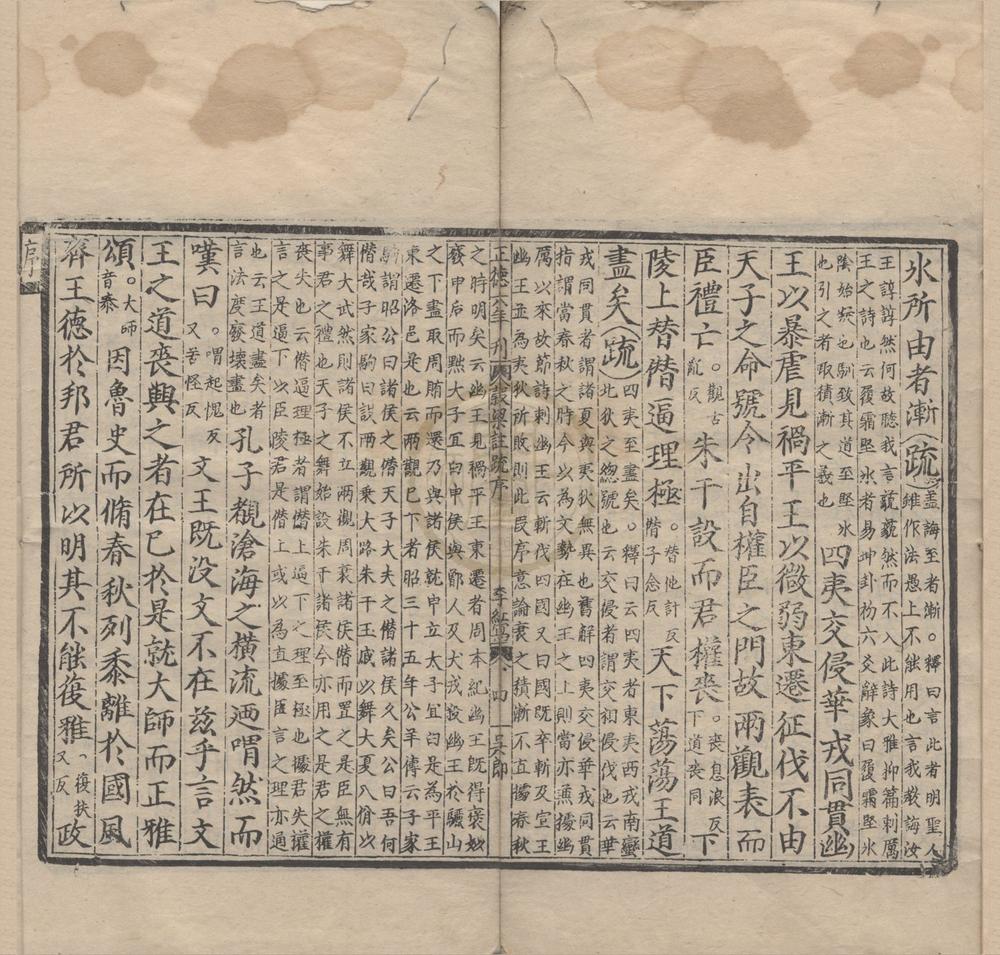 氷所由者漸疏蓋誨至者漸○釋曰言此者明聖人
雖作法愚上不能用也言我教誨汝
王諄諄然何故聽我言藐藐然而不入此詩大雅抑篇刺厲
王之詩也云履霜堅氷者易坤卦初六爻辭象曰履霜堅氷
陰始凝也馴致其道至堅氷
也引之者取積漸之義也四夷交侵華戎同貫幽
王以暴虐見禍平王以微弱東遷征伐不由
天子之命號令出自權臣之門故兩觀表而
臣禮亡○觀古亂反朱干設而君權喪○喪息浪反下道喪同下
陵上替僭逼理極○替他計反僭子念反天下蕩蕩王道
盡矣疏四夷至盡矣○釋曰云四夷者東夷西戎南蠻
北狄之惣號也云交侵者謂交相侵伐也云華
戎同貫者謂諸夏與夷狄無異也舊解四夷交侵華戎同貫
指謂當春秋之時今以為文勢在幽王之上則當亦兼據幽
厲以來故節詩刺幽王云斬伐四國又曰國既卒斬及宣王
幽王並為夷狄所敗則此段序意論衰之積漸不直據春秋
正德六年刊 穀梁註疏序 李紅寫 四 吳郎
之時明矣云幽王見禍平王東遷者周本紀幽王既得褒姒
廢申后而黜大子宜臼申侯與鄫人及犬戎殺幽王於驪山
之下盡取周賂而還乃與諸侯就申立太子宜臼是為平王
東遷洛邑是也云兩觀已下者昭二十五年公羊傳云子家
駒謂昭公曰諸侯之僭天子大夫之僭諸侯久矣公曰吾何
僭哉子家駒曰設兩觀乘大路朱干玉戚以舞大夏八佾以
舞大武然則諸侯不立兩觀周衰諸侯僭而置之是臣無有
事君之禮也天子之舞始設朱干諸侯今亦用之是君之權
喪矣也云僭逼理極者謂僭上逼下之理至極也據君失權
言之是逼下以臣陵君是僭上或以為直據臣言之理亦通
也云王道盡矣者
言法度廢壞盡也孔子覩滄海之橫流迺喟然而
嘆曰○喟起愧反又苦怪反文王既没文不在茲乎言文
王之道喪興之者在已於是就大師而正雅
頌○大師音泰因魯史而脩春秋列黍離於國風
齊王德於邦君所以明其不能復雅○復扶又反政
序